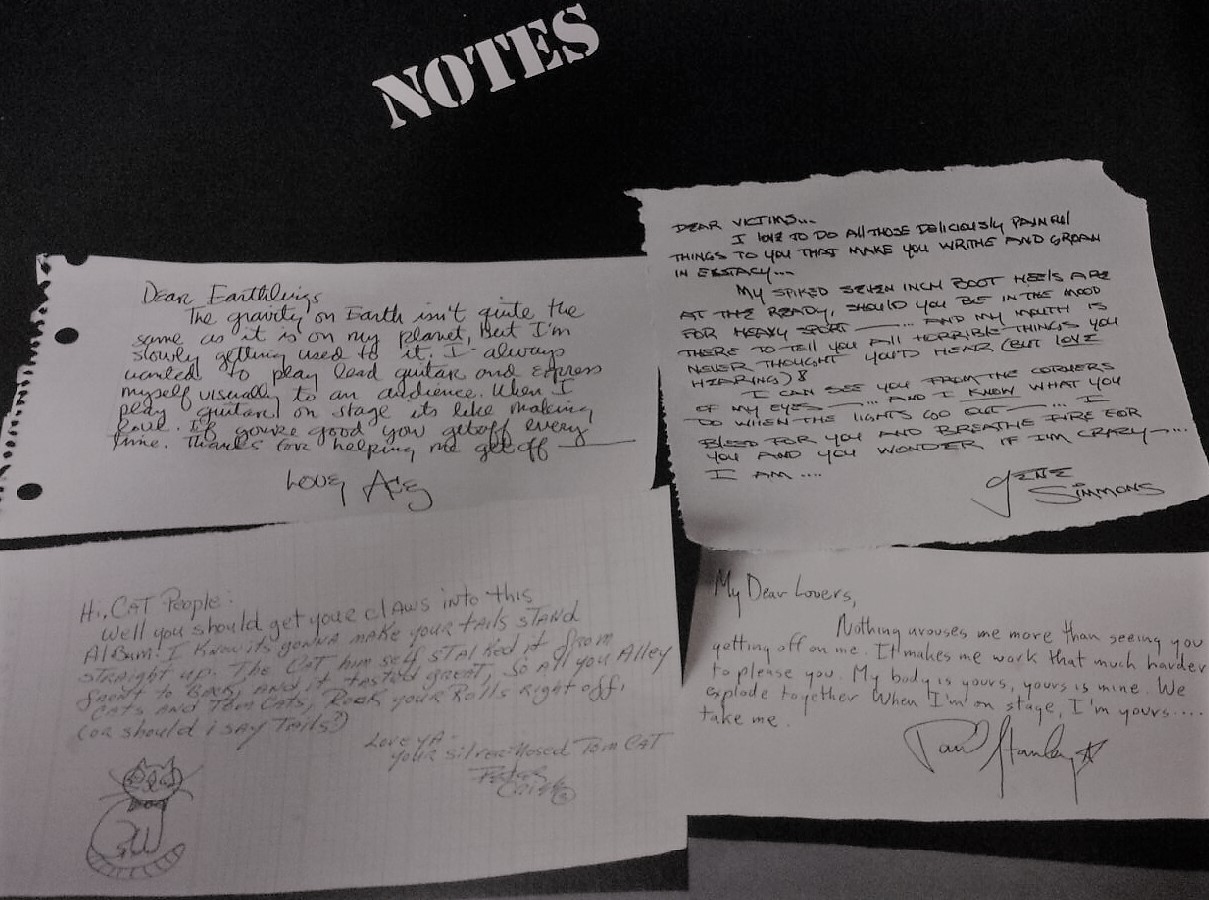 NOTES
Dear Earthlings
The gravity on Earth isn't quite the
same as it is on my planet, But I'm
slowly getting used to it. I always
wanted to play lead guitar and express
myself visually to an audience. When I
play guitar on stage its like making
love. If you're good you get off every
time. Thanks for helping me get off
Love, Ace
DEAR VICTIMS...
I love TO DO All THOSE Deliciously PAINFul
THINGS TO YOU THAT MAKE YOU WRITHE AND GROAN
IN EXSTACY...
MY SPIKED SEVEN INCH BOOT HEELS ARE
AT THE READY, SHOULD YOU BE IN THE MOOD
FOR HEAVY SPORT —... AND MY MOUTH IS
THERE TO TELL YOU ALL HORRIBLE THINGS YOU
NEVER THOUGHT YOU'D HEAR (BUT LOVE
HEARING)!
I CAN SEE YOU FROM THE CORNERS
OF MY EYES —... AND I KNOW WHAT YOU
DO WHEN THE LIGHTS GO OUT —... I
BLEED FOR YOU AND BREATHE FIRE FOR
YOU AND YOU WONDER IF I'M CRAZY —...
I AM ....
GENE
SIMMONS
Hi, CAT People:
Well you should get your claws into this
Album! I Know its gonna make your tails STAND
STRAIGHT up. The CAT him self STALked it from
front to BACK, AND it tasted great, So All you Alley
CATS AND TOM CATS, Rock your Rolls Right off,
(or should i say Tails?)
Love YA-
your silver-Nosed Tom CAT
Peter
Criss
My Dear Lovers,
Nothing arouses me more than seeing you
getting off on me. It makes me work that much harder
to please you. My body is yours, yours is mine. We
explode together When I'm on stage, I'm yours....
take me.
Paul Stanley